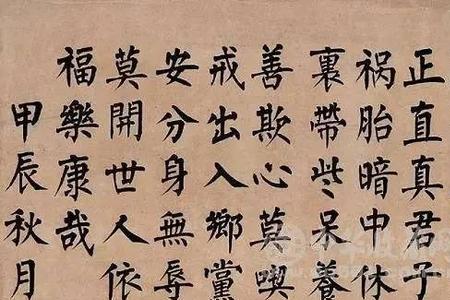 正直真君子
祸胎暗中休
裏帶些呆養
善欺心莫喫
戒出入鄉黨
安分身無辱
莫開世人依
福樂康哉
甲辰秋月